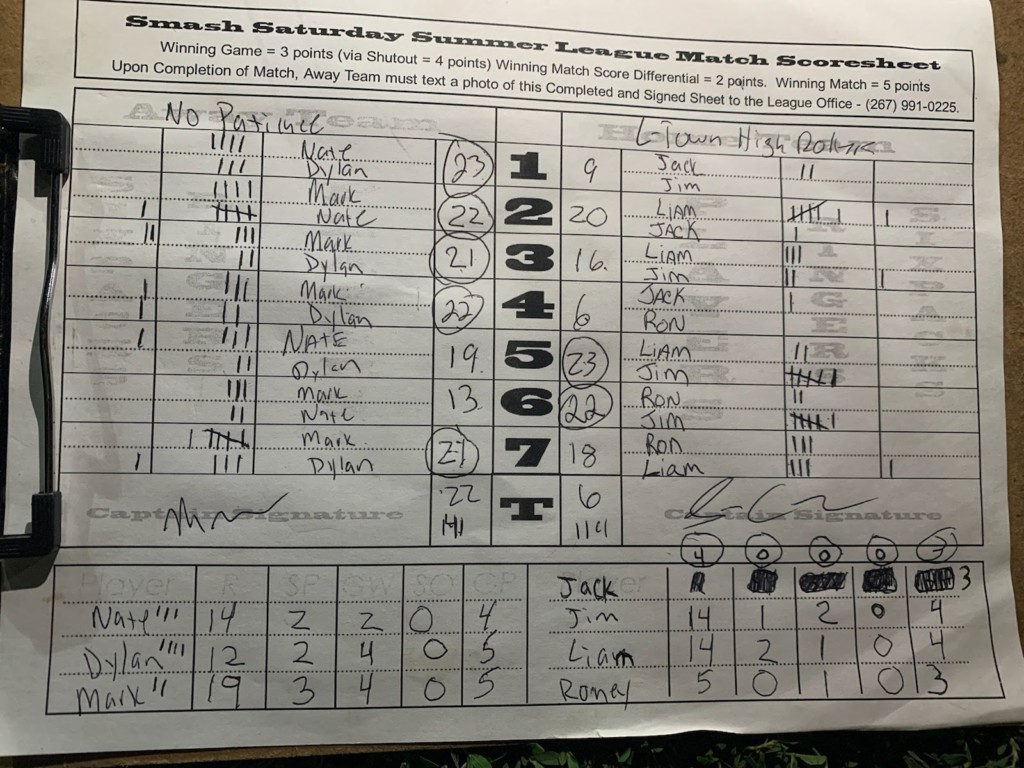 Smash Saturday Summer League Match Scoresheet
Winning Game = 3 points (via Shutout = 4 points) Winning Match Score Differential = 2 points. Winning Match = 5 points
Upon Completion of Match, Away Team must text a photo of this Completed and Signed Sheet to the League Office - (267) 991-0225.
Away Team Home Team
No L-Town High
Nate 23 1 9 Jack
Dylan Jim
Mark 22 2 20 LIAM
Nate JACK
Mark 21 3 16. LIAM
Dylan Jim
Mark 22 4 6 JACK
Dylan RON
NATE 19. 5 23 LIAM
Dylan Jim
Mark 13. 6 22 RON
Nate JIM
Mark 21 7 18 RON
Dylan Liam
22 T 6
141 114
Captain Signature Captain Signature
4 0 0 0 3
Player R SP GW SO GP Jack Player R 3
Nate 14 2 2 0 4 Jim 14 1 2 0 4
Dylan 12 2 4 0 5 Liam 14 2 1 0 4
Mark 19 3 4 0 5 Roney 5 0 1 0 3